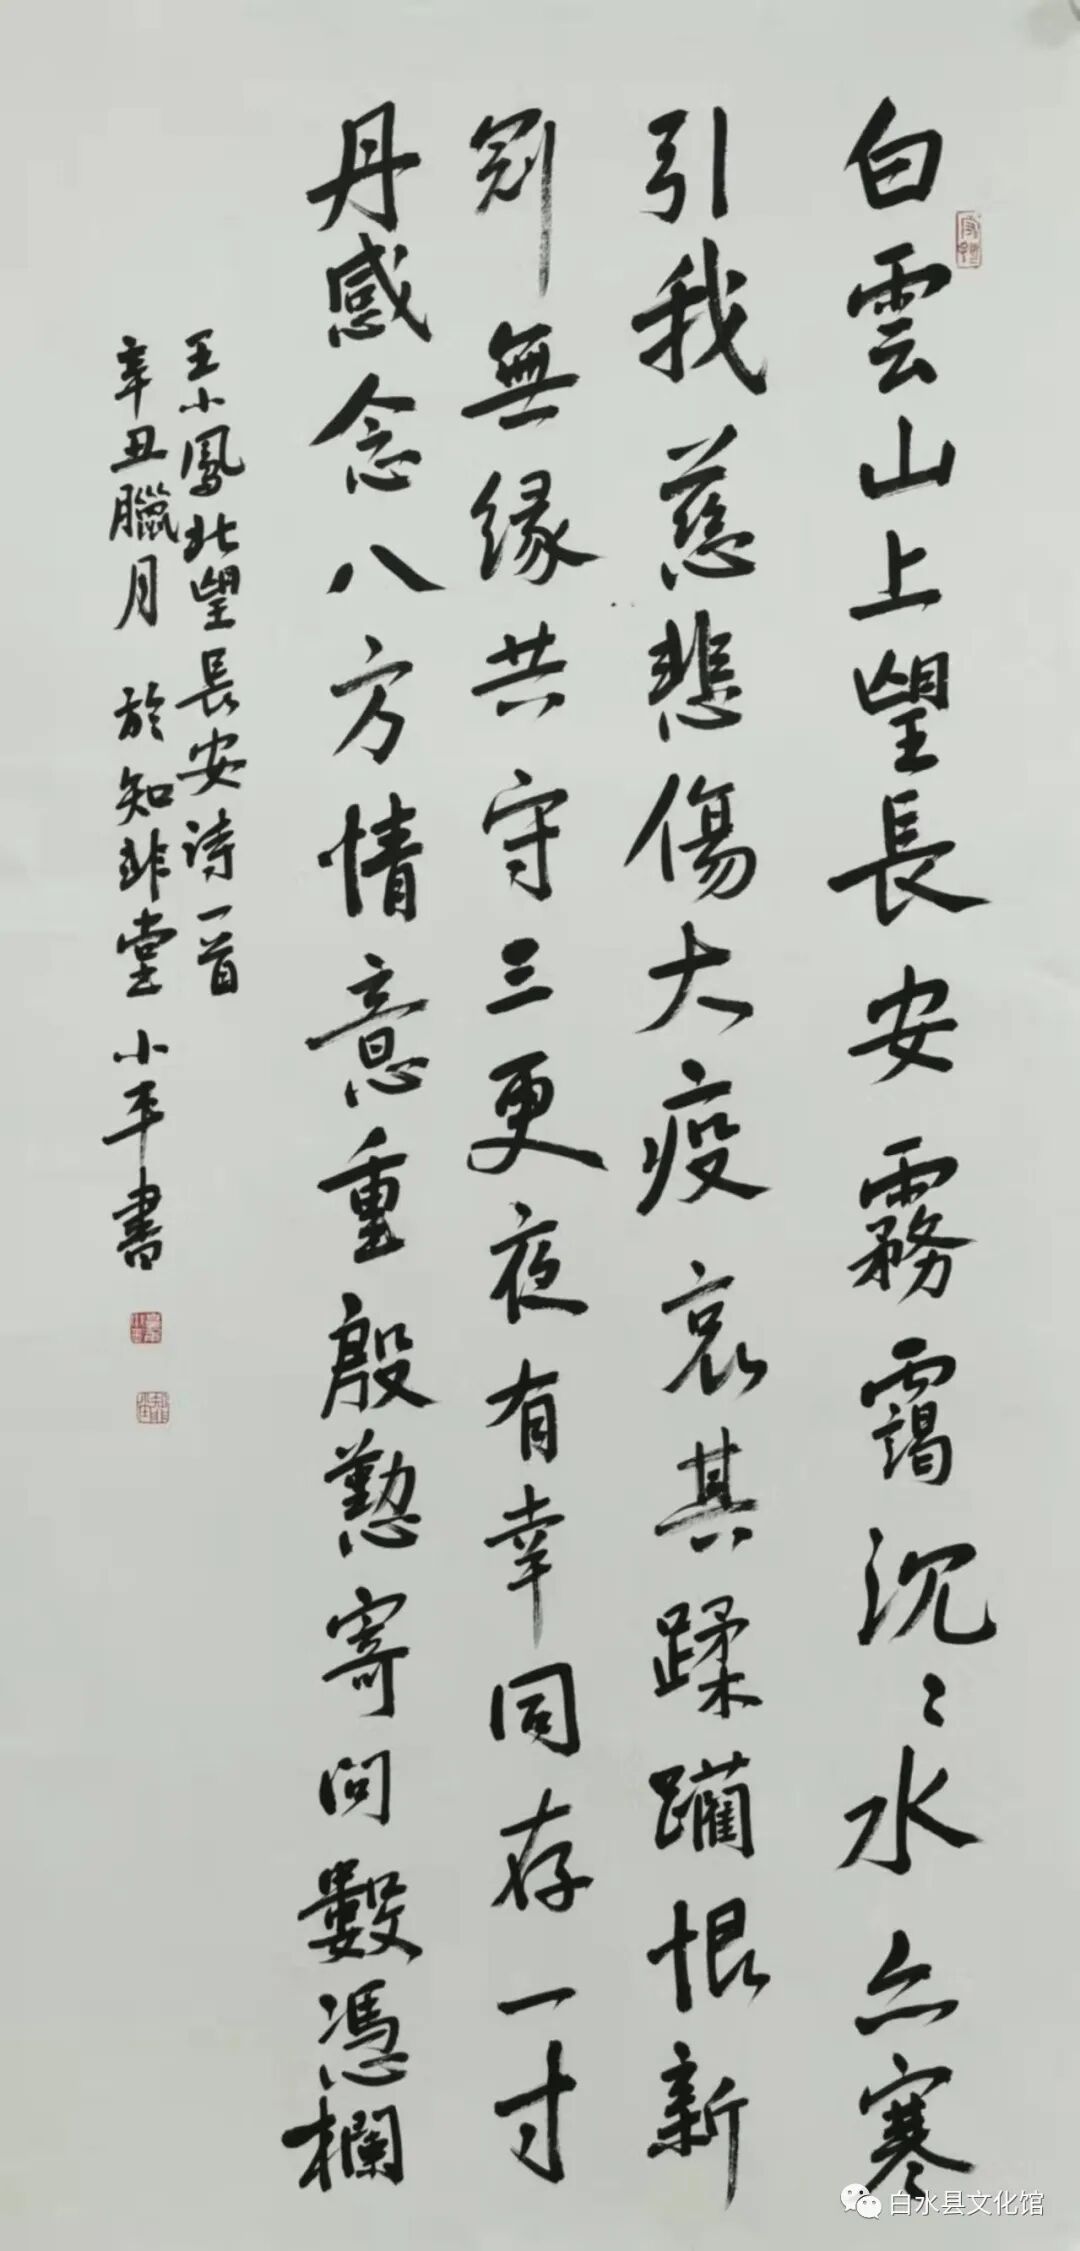 白雲山上望長安霧靄沉〻水亦寒
引我慈悲傷大疫哀其蹂躪恨新
剜無緣共守三更夜有幸同存一寸
丹感念八方情意重殷懃寄问數憑欄
王小鳳北望長安詩一首
辛丑臘月於知非堂小平書
白水县文化馆